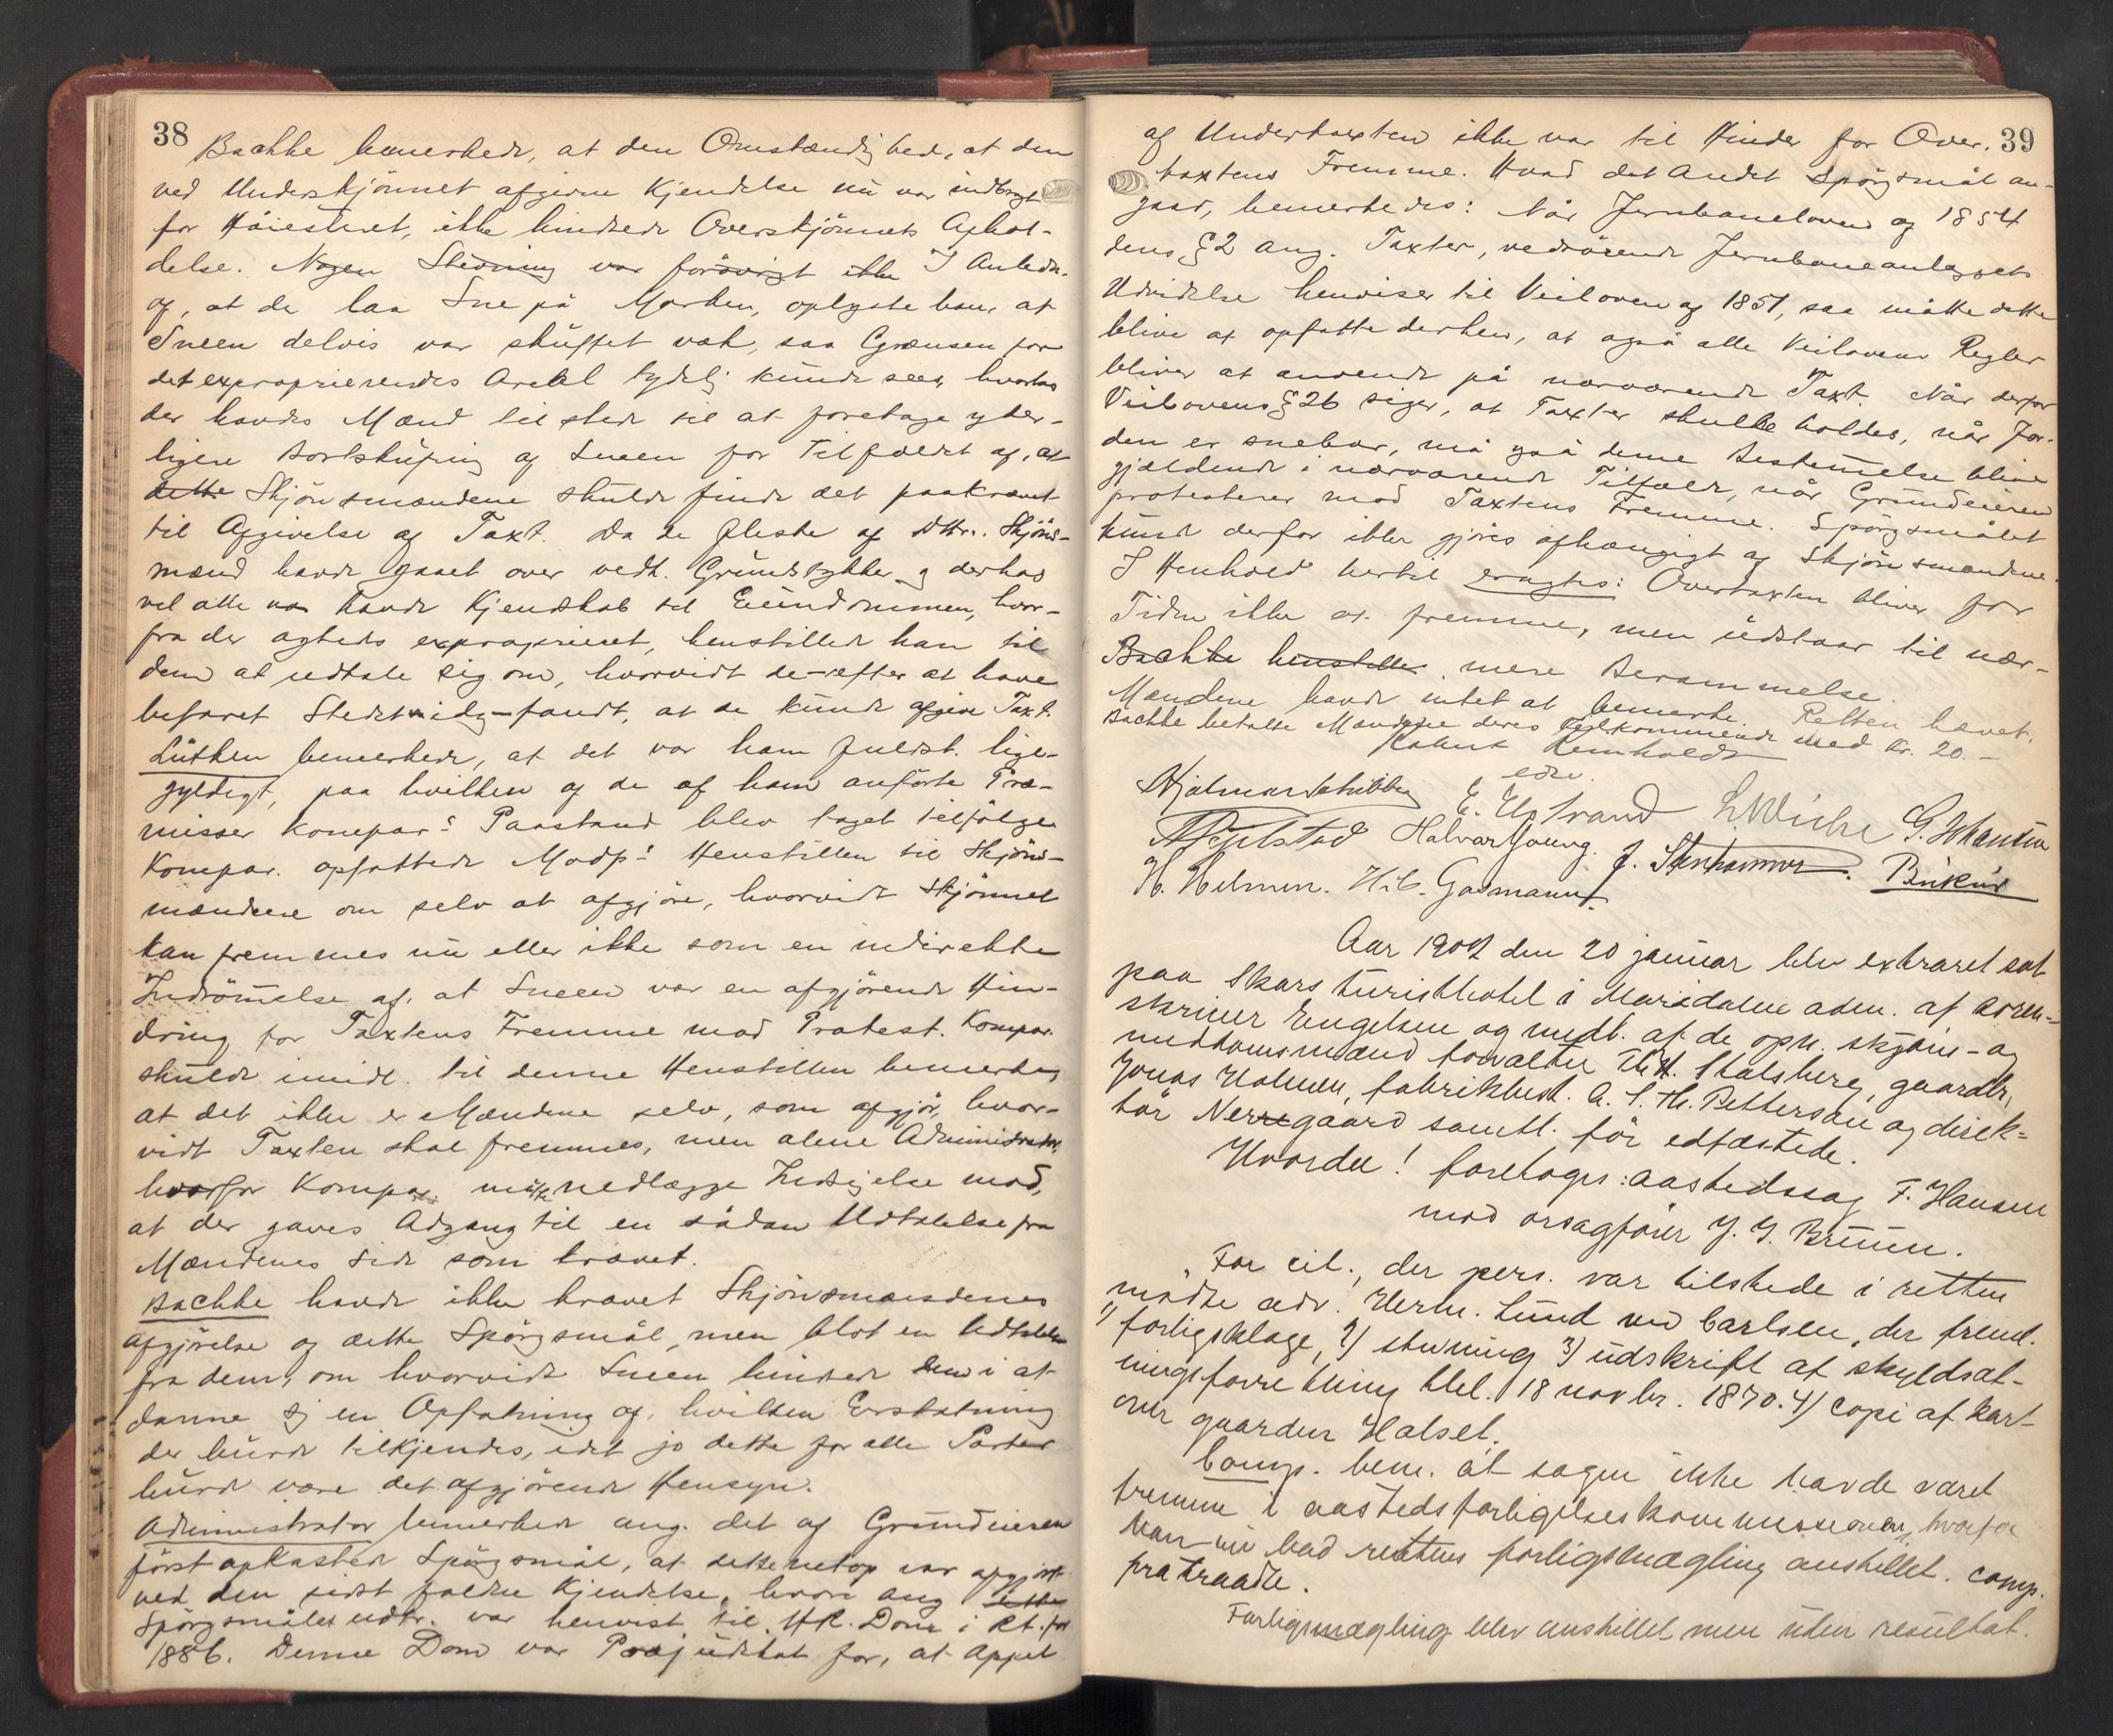 38
Bachke bemerkede, at den Omstændighed, at den
ved Underskjönnet afgivne Kjendelse nu var indbragt
for Höiesteret, ikke hindrede Overskjönnets Aphol-
delse. Nogen Stevning var forövrigt ikke I Anledn.
af, at der laa Sne på Marken, oplyste han, at
Sneen delvis var skuffet væk, saa Grænsen for
det exproprierendes Areal tydelig kunde sees, hvorhos
der havdes Mænd tilstede til at foretage yder-
ligere Bortskufning af Sneen for Tilfældet af, at
dette Skjönsmændene skulde finde det paakrævet
til Afgivelse af Taxt. Da de fleste af DHr. Skjöns-
mænd havde gaaet over vedk. Grundstykker og derhos
vel alle var havde Kjendskab til Eiendommen, hvor-
fra der agtedes exproprieret, henstillede han til
dem at udtale sig om, hvorvidt de - efter at have
befaret Stedet idag - fandt, at de kunde afgive Taxt.
Lütken bemerkede, at det var ham fuldst. lige-
gyldigt, paa hvilken af de af ham anförte Præ-
misser Kompar.s Paastand blev taget tilfölge.
Kompar. opfattede Modp.s Henstillen til Skjöns-
mændene om selv at afgjöre, hvorvidt Skjönnet
kan fremmes nu eller ikke som en indirekte
Indrömmelse af, at Sneen var en afgjörende Hin-
dring for Taxtens Fremme mod Protest. Kompar.
skulde imidl. til denne Henstillen bemerke,
at det ikke er Mændene selv, som afgjör, hvor-
vidt Taxten skal fremmes, men alene Administrator,
hvorfor Kompar. måtte nedlægge Indsigelse mod,
at der gaves Adgang til en sådan Udtalelse fra
Mændenes Side som krævet.
Bachke havde ikke krævet Skjönsmændenes
Afgjörelse af dette Spörgsmål, men blot en Udtalelse
fra dem, om hvorvidt Sneen hindred dem i at
danne sig en Opfatning af, hvilken Erstatning
der burde tilkjendes, idet jo dette for alle Parter
burde være det afgjörende Hensyn.
Administrator bemerkede ang. det af Grundeieren
först opkastede Spörgsmål, at dette netop var afgjort
ved den sidst faldne Kjendelse, hvori ang. dette
Spörgsmålet udtr. var henvist til HR. Dom i Rt. for
1886. Denne Dom var Præjudikat for, at Appel
39
af Undertaxten ikke var til Hinder for Over-
taxtens Fremme. Hvad det andet Spörgsmål an-
gaar, bemerkedes: Når Jernbaneloven af 1854
dens § 2 ang. Taxter, vedrörende Jernbaneanlæggets
Udvidelse henviser til Veiloven af 1851, saa måtte dette
blive at opfatte derhen, at også alle Veilovens Regler
bliver at anvende på nærværende Taxt. Når derfor
Veilovens § 26 siger, at Taxter skulle holdes, når Jor-
den er snebar, må også denne Bestemmelse blive
gjældende i nærværende Tilfælde, når Grundeieren
protesterer mod Taxtens Fremme. Spörgsmålet
kunde derfor ikke gjöres afhængigt af Skjönsmændene.
I Henhold hertil eragtes: Overtaxten bliver for
Tiden ikke at fremme, men udstaar til nær-
Bachke henstiller mere Berammelse.
Mændene havde intet at bemerke. Retten hævet.
Bachke betalte Mændene deres Tilkommende med Kr. 20.-
edsv.
E. Elstrand
Halvar Young.
H. Helmen. H. C. Gasmann.
Aar 1902 den 20 januar blev extraret sat
paa Skars turisthotel i Maridalen adm. af soren-
skriver Engelsen og medb. af de opn. skjöns- og
meddomsmænd forvalter Th. H. Stalsberg, gaardbr.
Jonas Holmen, fabrikbest. A. S. H. Pettersen og direk-
tör Nerregaard samtl. för edfæstede.
Hvorda! foretoges: aastedssag F. Hansen
mod orsagförer J. G. Bruun.
For cit., der pers. var tilstede i retten
mödte adv. Herm. Lund ved Carlsen, der freml.
1) forligsklage, 2) stevning 3) udskrift af skyldsæt-
ningsforretning thl. 18 novbr. 1870. 4) copi af kart
over gaarden Halset.
Comp. bem. at sagen ikke havde været
fremme i aastedsforligelseskommissionen, hvorfor
han nu bad rettens forligsmægling anstillet. Comp.
fratraadte.
Forligsmægling blev anstillet men uden resultat.